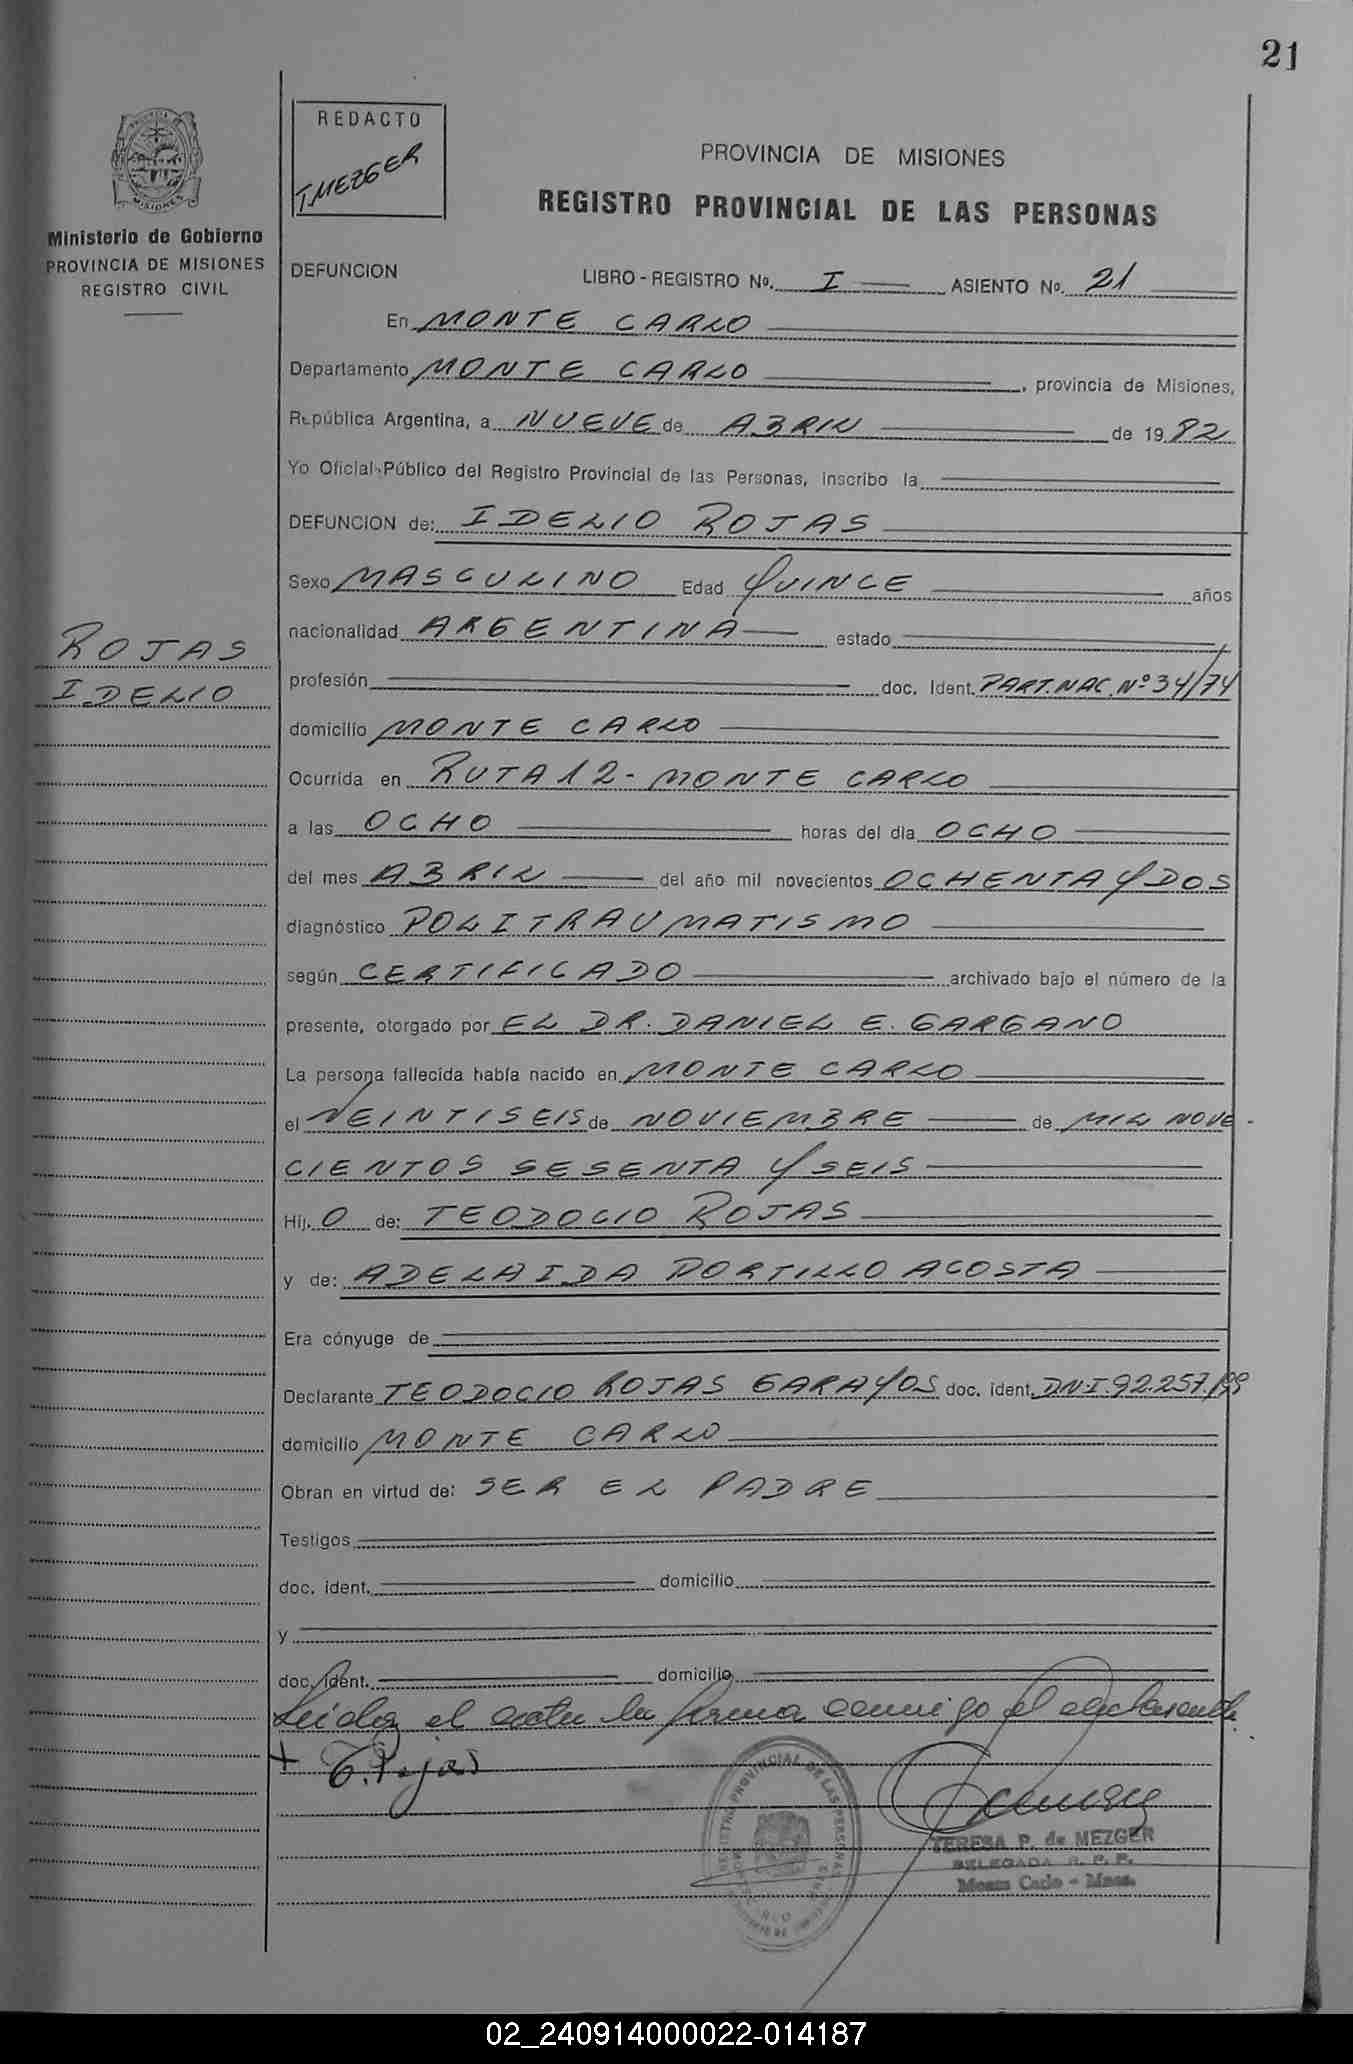 21
REDACTO
T.MEZGER
PROVINCIA DE MISIONES
REGISTRO PROVINCIAL DE LAS PERSONAS
MISIONES
Ministerio de Gobierno
PROVINCIA DE MISIONES
REGISTRO CIVIL
DEFUNCION LIBRO - REGISTRO No. I ASIENTO No. 21
En MONTE CARLO
Departamento MONTE CARLO, provincia de Misiones,
República Argentina, a NUEVE de ABRIL de 1982
Yo Oficial Público del Registro Provincial de las Personas, inscribo la
DEFUNCION de: IDELIO ROJAS
Sexo MASCULINO Edad QUINCE años
nacionalidad ARGENTINA estado
ROJAS
IDELIO
profesión doc. Ident. PART. NAC. Nº 34/74
domicilio MONTE CARLO
Ocurrida en RUTA 12 - MONTE CARLO
a las OCHO horas del día OCHO
del mes ABRIL del año mil novecientos OCHENTA Y DOS
diagnóstico POLITRAUMATISMO
según CERTIFICADO archivado bajo el número de la
presente, otorgado por EL DR. DANIEL E. GARGANO
La persona fallecida había nacido en MONTE CARLO
el VEINTISEIS de NOVIEMBRE de MIL NOVE-
CIENTOS SESENTA Y SEIS
Hij. O de: TEODOCIO ROJAS
y de: ADELAIDA PORTILLO ACOSTA
Era cónyuge de
Declarante TEODOCIO ROJAS GARAYOS doc. ident. D.N.I. 92.257.199
domicilio MONTE CARLO
Obran en virtud de: SER EL PADRE
Testigos
doc. ident. domicilio
y
doc. ident. domicilio
Leida el acta la firma conmigo el declarante.
+ T. Rojas
REGISTRO PROVINCIAL DE LAS PERSONAS
TERESA P. de MEZGER
DELEGADA R. P. P.
Monte Carlo - Mnes.
02_240914000022-014187